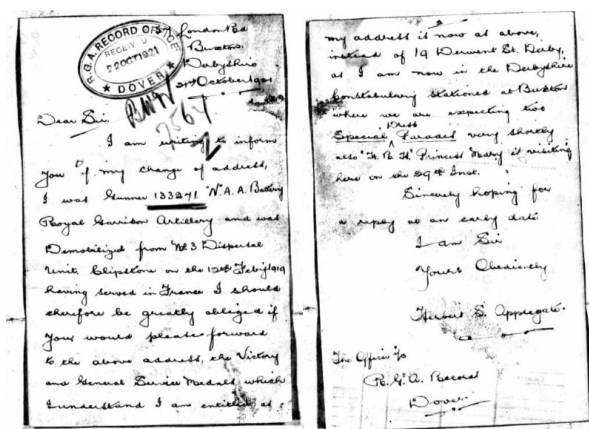 R.G.A. RECORD OFFICE
RECEIVED
22 OCT 1921
DOVER
London Rd
Buxton
Derbyshire
21st October 1921
Dear Sir
I am writing to inform
you of my change of address,
I was Gunner 133271 "N" A.A. Battery
Royal Garrison Artillery and was
Demobilized from No 3 Dispersal
Unit Clipstone on the 12th Feby 1919
having served in France I should
therefore be greatly obliged if
your would please forward
to the above address, the Victory
and General Service Medals which
I understand I am entitled as
my address is now as above,
instead of 19 Derwent St. Derby,
as I am now in the Derbyshire
Constabulary stationed at Buxton
where we are expecting two
Dress
Special Parades very shortly
also H. R. H. Princess Mary is visiting
here on the 29th Inst.
Sincerely hoping for
a reply at an early date
I am Sir
Yours Obediently
S. Applegate.
The Officer i/c
R. G. A. Record
Dover.